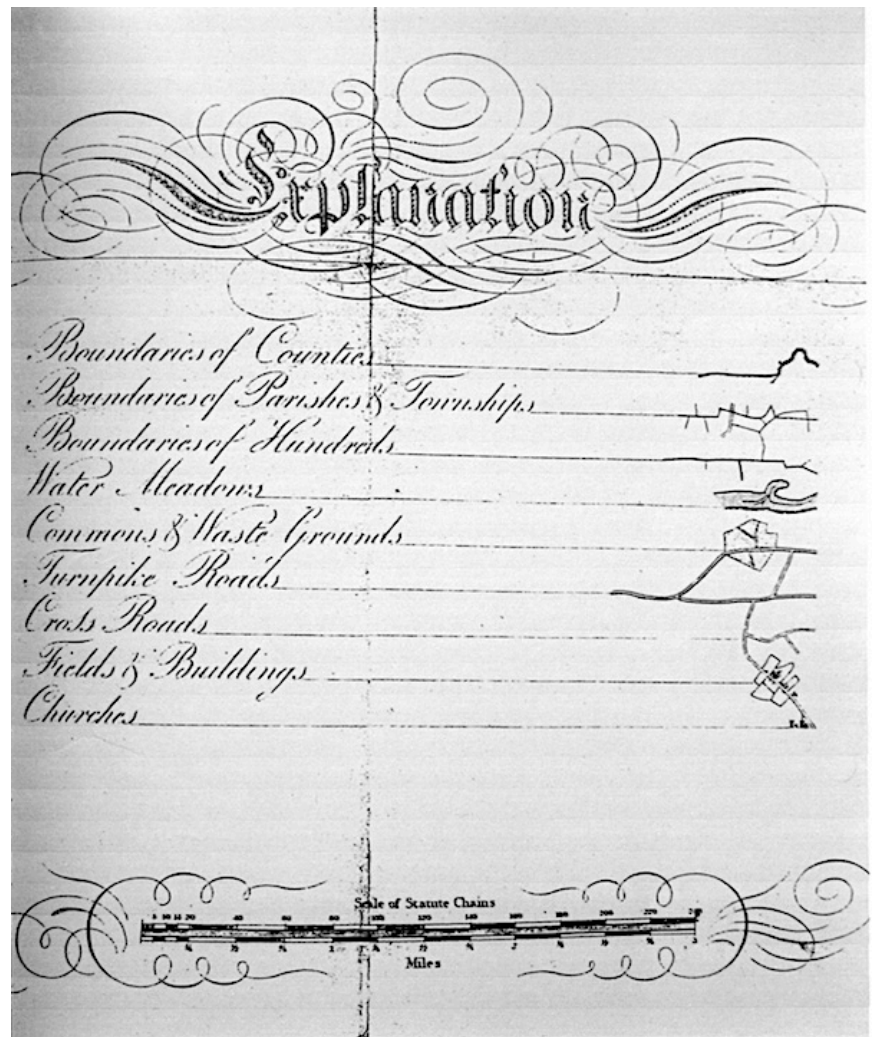 Explanation
Boundaries of Counties
Boundaries of Parishes & Townships
Boundaries of Hundreds
Water Meadows
Commons & Waste Grounds
Turnpike Roads
Cross Roads
Fields & Buildings
Churches
Scale of Statute Chains
5 10 15 20 40 60 80 100 120 140 160 180 200 220
Miles